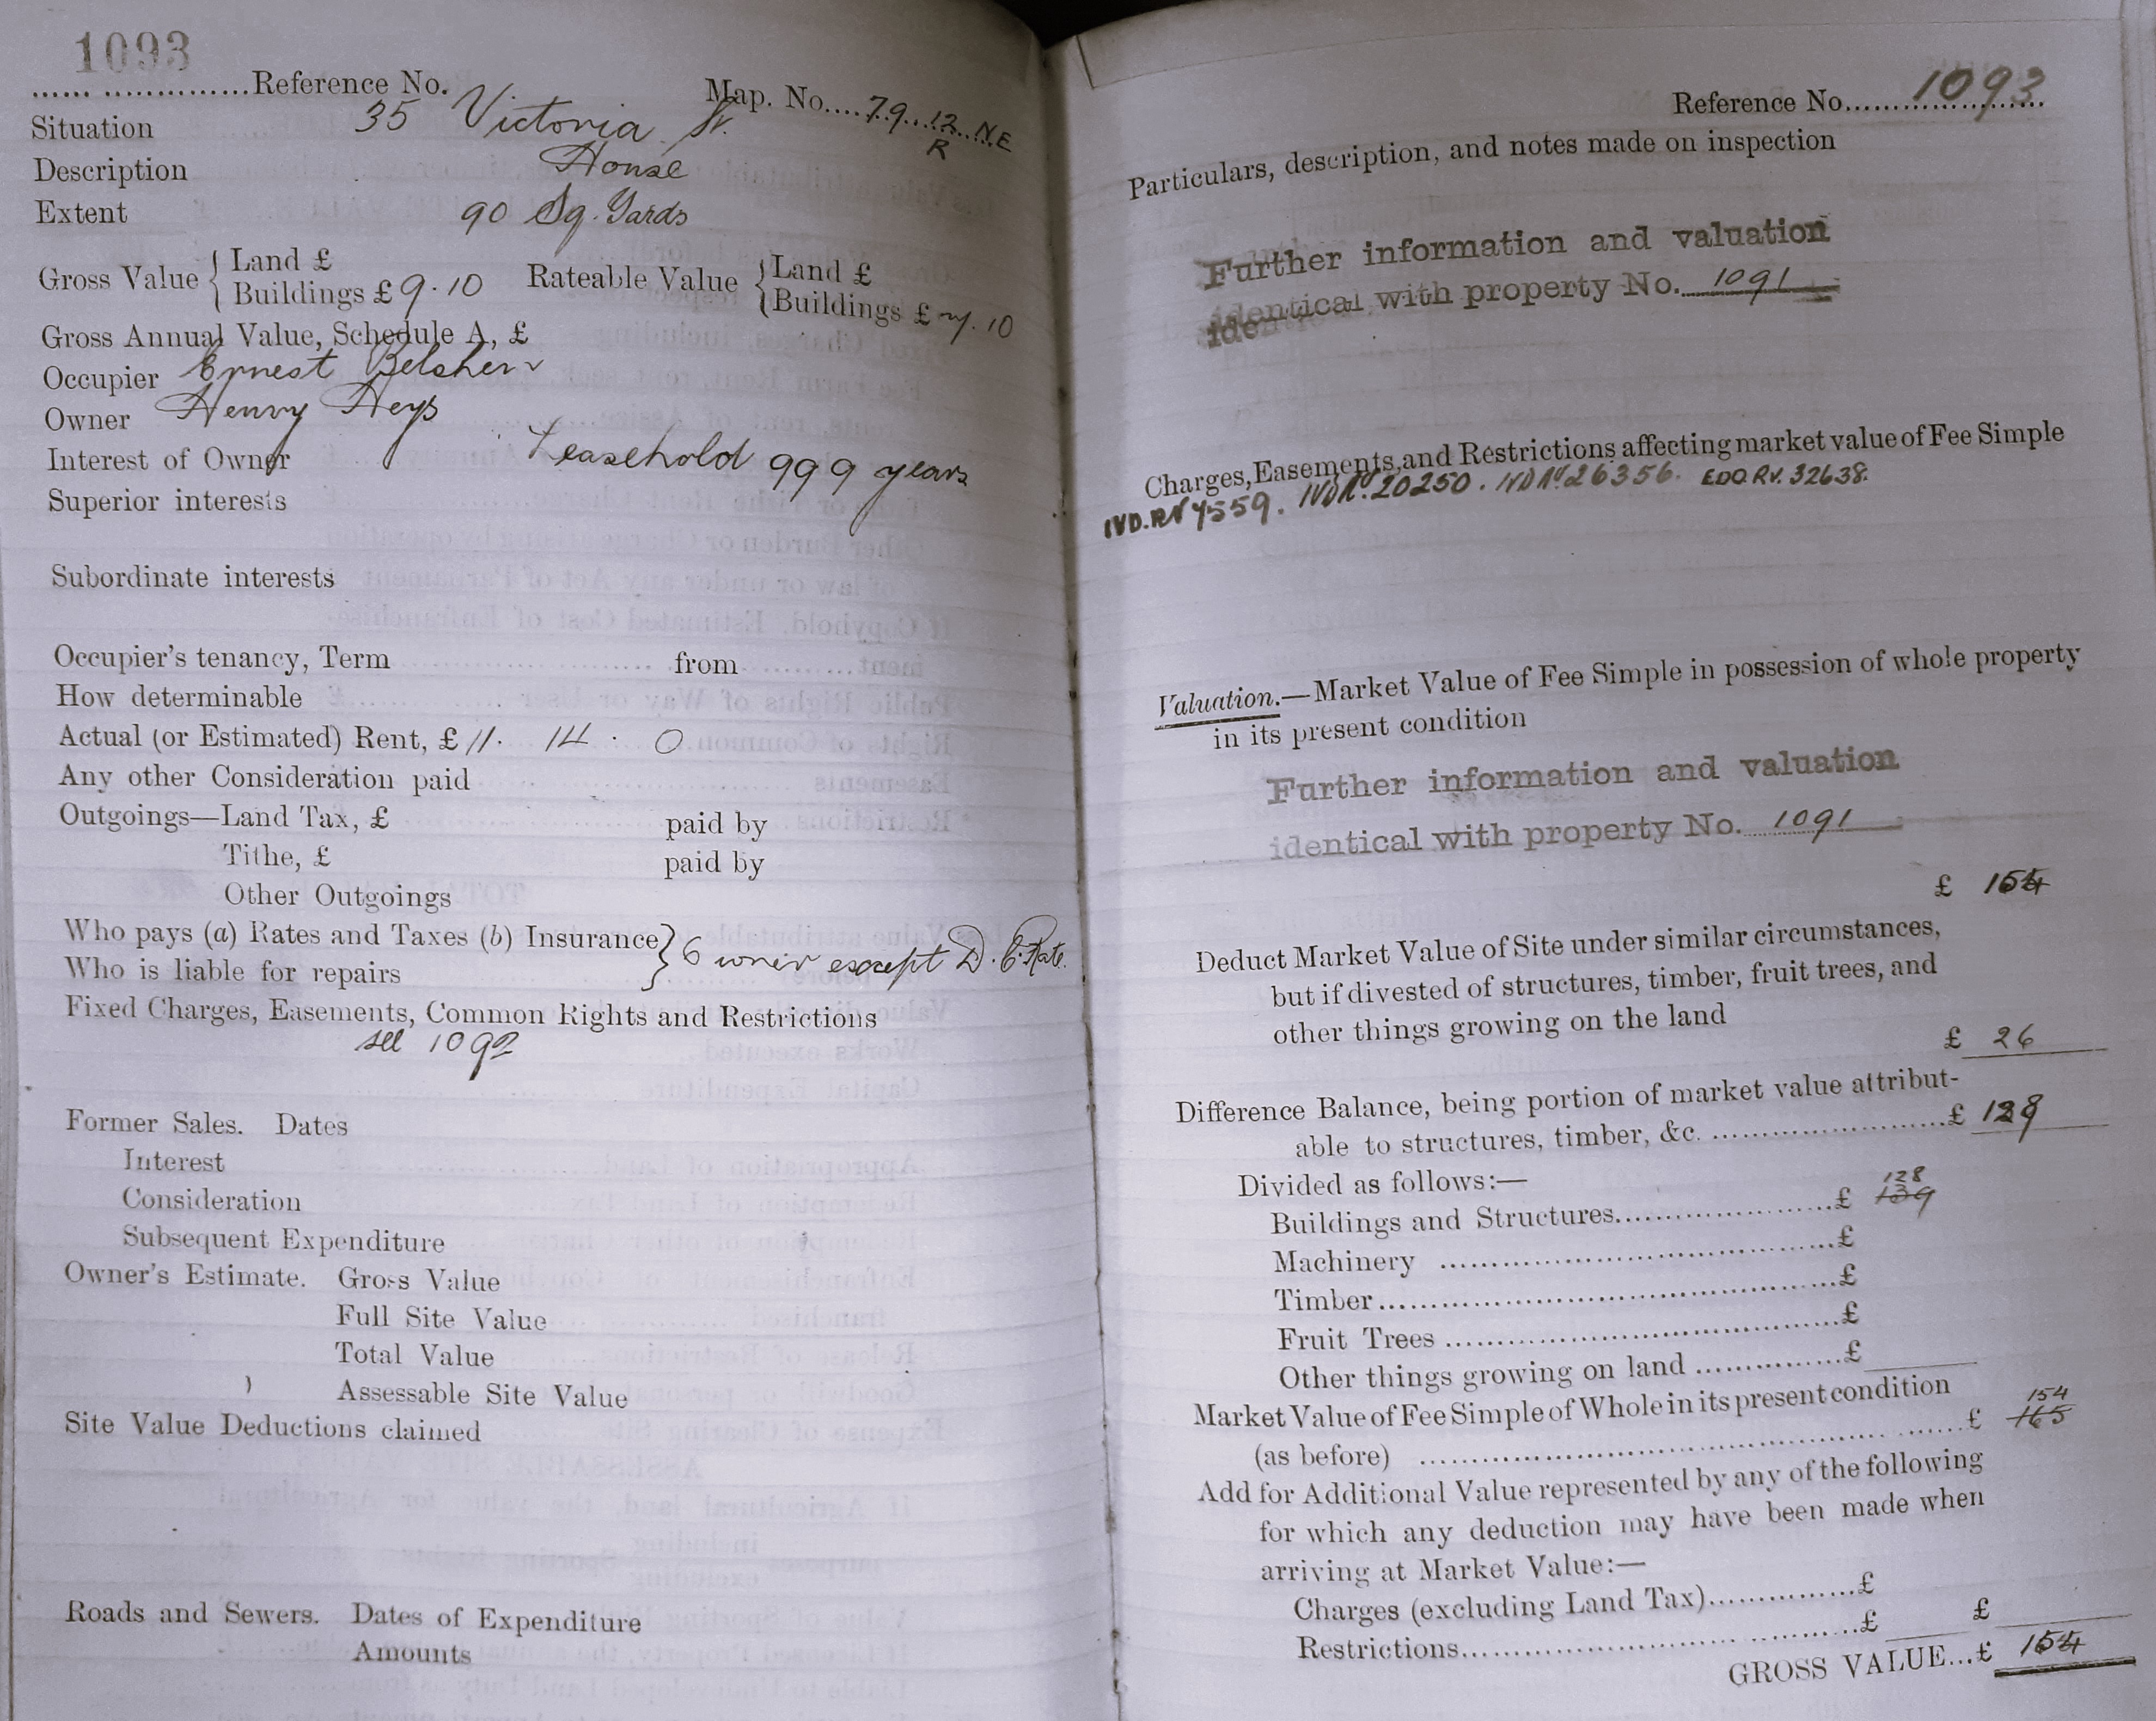 1093
...... ..............Reference No. Map. No....79..12..N.E
R
Situation 35 Victoria St.
Description House
Extent 90 Sq. Yards
Gross Value { Land £ Rateable Value { Land £
Buildings £ 9.10 Buildings £ 7.10
Gross Annual Value, Schedule A, £
Occupier Ernest Belsher
Owner Henry Heys
Interest of Owner Leasehold 999 years
Superior interests
Subordinate interests
Occupier's tenancy, Term from
How determinable
Actual (or Estimated) Rent, £ 11. 14. 0
Any other Consideration paid
Outgoings—Land Tax, £ paid by
Tithe, £ paid by
Other Outgoings
Who pays (a) Rates and Taxes (b) Insurance } owner except D. Rate.
Who is liable for repairs
Fixed Charges, Easements, Common Rights and Restrictions
see 1092
Former Sales. Dates
Interest
Consideration
Subsequent Expenditure
Owner's Estimate. Gross Value
Full Site Value
Total Value
Assessable Site Value
Site Value Deductions claimed
Roads and Sewers. Dates of Expenditure
Amounts
Reference No. 1093
Particulars, description, and notes made on inspection
Further information and valuation
identical with property No. 1091
Charges, Easements, and Restrictions affecting market value of Fee Simple
20250. 26356. 32638.
Valuation.—Market Value of Fee Simple in possession of whole property
in its present condition
Further information and valuation
identical with property No. 1091
£ 154
Deduct Market Value of Site under similar circumstances,
but if divested of structures, timber, fruit trees, and
other things growing on the land
£ 26
Difference Balance, being portion of market value attribut-
able to structures, timber, &c. £ 128
Divided as follows:—
128
Buildings and Structures £ 139
Machinery £
Timber £
Fruit Trees £
Other things growing on land £
Market Value of Fee Simple of Whole in its present condition
154
(as before) £ 165
Add for Additional Value represented by any of the following
for which any deduction may have been made when
arriving at Market Value:—
Charges (excluding Land Tax) £
Restrictions £ £
GROSS VALUE...£ 154